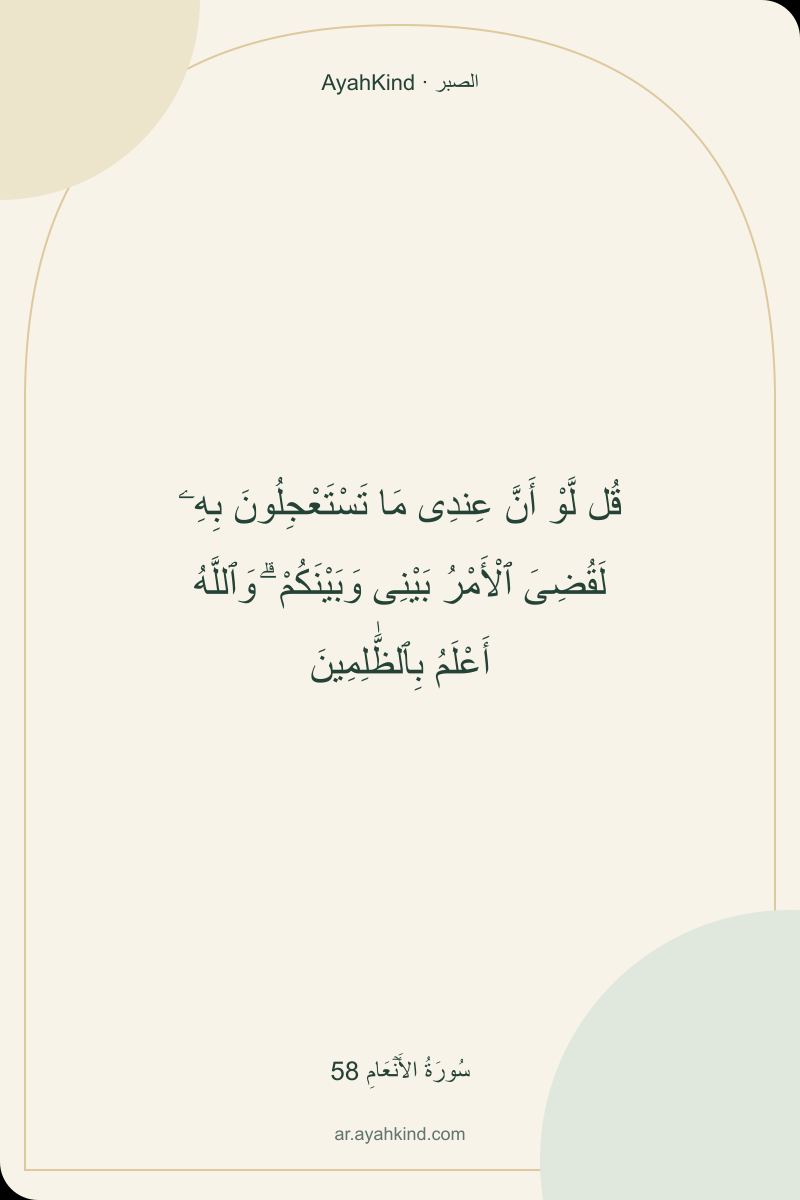 AyahKind · الصبر
قُل لَّوْ أَنَّ عِندِى مَا تَسْتَعْجِلُونَ بِهِۦ
لَقُضِىَ ٱلْأَمْرُ بَيْنِى وَبَيْنَكُمْ ۗ وَٱللَّهُ
أَعْلَمُ بِٱلظَّٰلِمِينَ
سُورَةُ الأَنۡعَامِ 58
ar.ayahkind.com